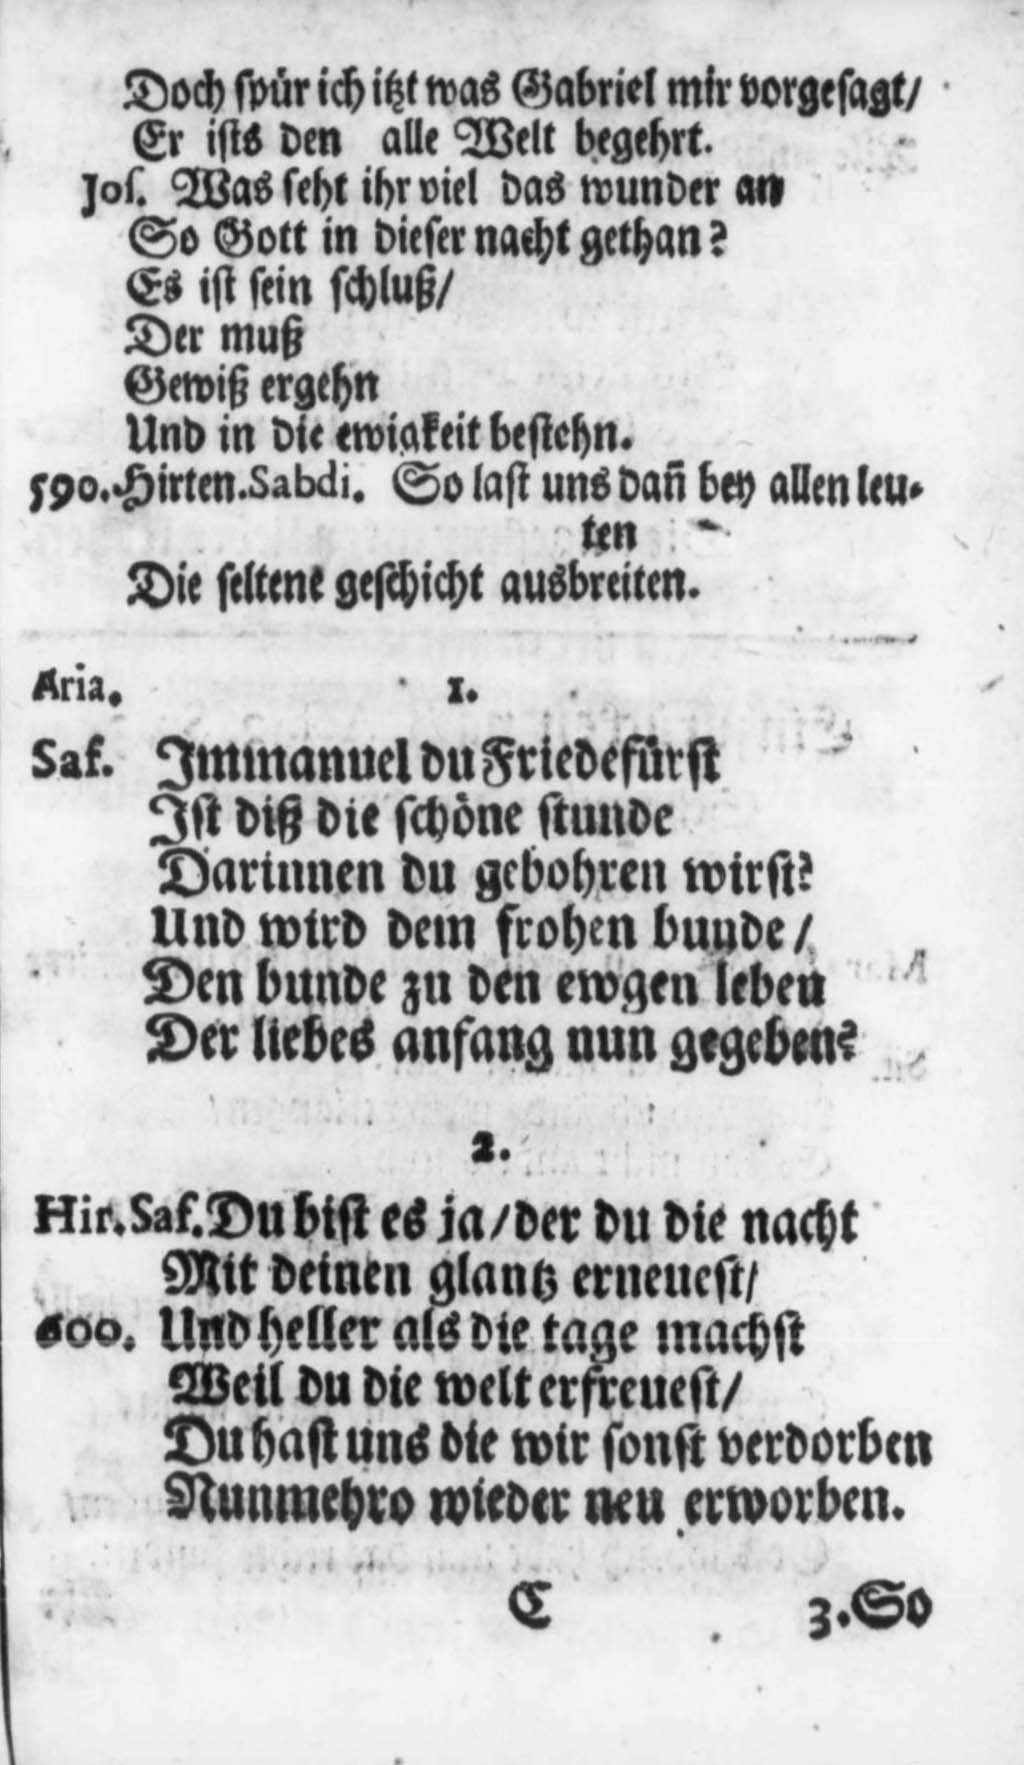 Doch spür ich itzt was Gabriel mir vorgesagt/
Er ists den alle Welt begehrt.
Jos. Was seht ihr viel das wunder an
So Gott in dieser nacht gethan?
Es ist sein schluß/
Der muß
Gewiß ergehn
Und in die ewigkeit bestehn.
590. Hirten. Sabdi. So last uns dañ bey allen leu-
ten
Die seltene geschicht ausbreiten.
Aria. 1.
Saf. Immanuel du Friedefürst
Ist diß die schöne stunde
Darinnen du gebohren wirst?
Und wird dem frohen bunde/
Den bunde zu den ewgen leben
Der liebes anfang nun gegeben?
2.
Hir. Saf. Du bist es ja/ der du die nacht
Mit deinen glantz erneuest/
600. Und heller als die tage machst
Weil du die welt erfreuest/
Du hast uns die wir sonst verdorben
Nunmehro wieder neu erworben.
C 3. So